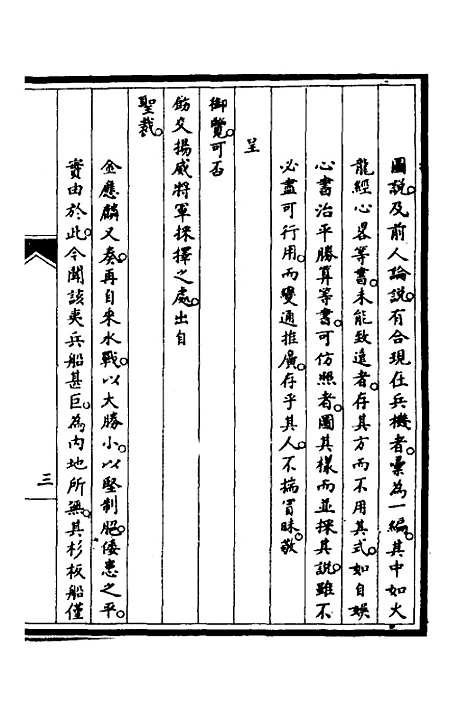 圖說。及前人論說。有合現在兵機者。彙為一編。其中如火
龍經心畧等書。未能致遠者。存其方而不用其式。如自娛
心書治平勝算等書。可仿照者。圖其樣而並採其說。雖不
必盡可行用。而變通推廣。存乎其人。不揣冒昧。敬
呈
御覽。可否
飭交揚威將軍採擇之處。出自
聖裁。
金應麟又奏。再自來水戰。以大勝小。以堅制脆。倭患之平。
實由於此。今聞該夷兵船甚巨。為內地所無。其杉板船僅
三